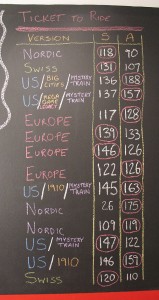 TICKET TO RIDE
VERSION S A
NORDIC 118 70
SWISS 131 107
US/BIG CITIES/MYSTERY TRAIN 136 188
US/MEGA GAME/MYSTERY TRAIN 137 157
EUROPE 117 128
EUROPE 139 133
EUROPE 146 126
EUROPE 122 126
US/1910/MYSTERY TRAIN 145 163
NORDIC 26 175
NORDIC 109 119
US/MYSTERY TRAIN 147 122
US/1910 146 159
SWISS 120 110